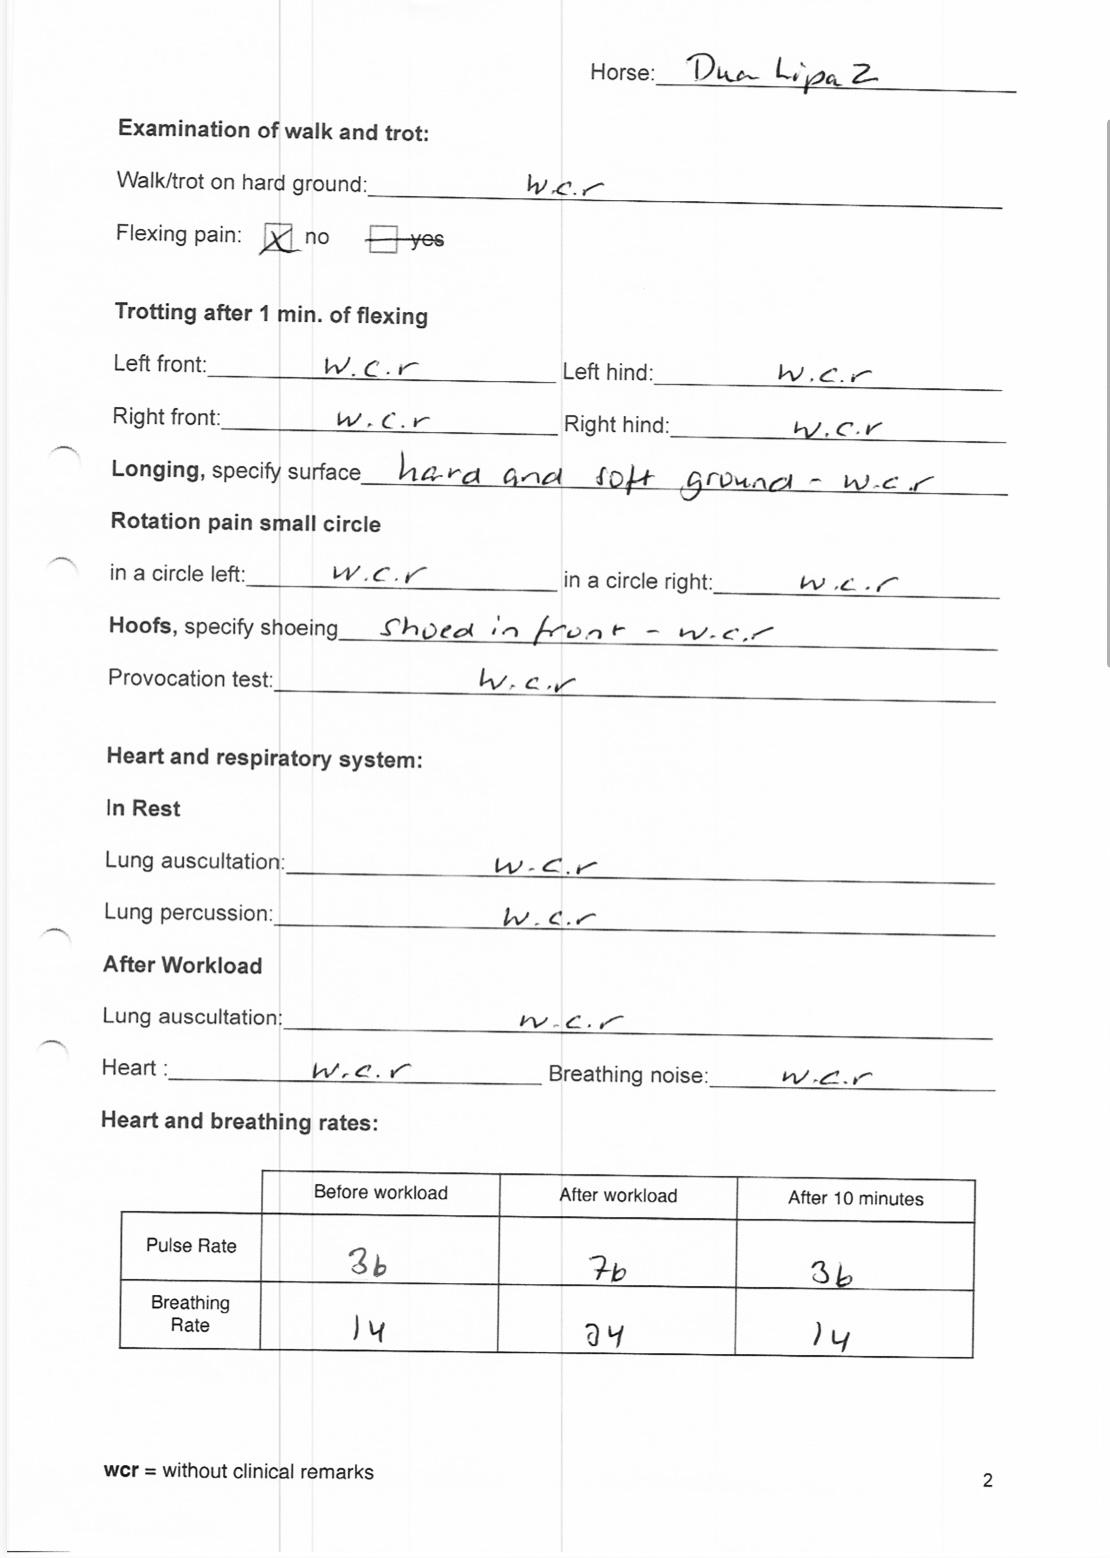 Horse: Dua Lipa Z
Examination of walk and trot:
Walk/trot on hard ground: w.c.r
Flexing pain: X no yes
Trotting after 1 min. of flexing
Left front: w.c.r Left hind: w.c.r
Right front: w.c.r Right hind: w.c.r
Longing, specify surface hard and soft ground - w.c.r
Rotation pain small circle
in a circle left: w.c.r in a circle right: w.c.r
Hoofs, specify shoeing shoed in front - w.c.r
Provocation test: w.c.r
Heart and respiratory system:
In Rest
Lung auscultation: w.c.r
Lung percussion: w.c.r
After Workload
Lung auscultation: w.c.r
Heart : w.c.r Breathing noise: w.c.r
Heart and breathing rates:
Before workload After workload After 10 minutes
Pulse Rate 36 76 36
Breathing
Rate 14 24 14
wcr = without clinical remarks
2